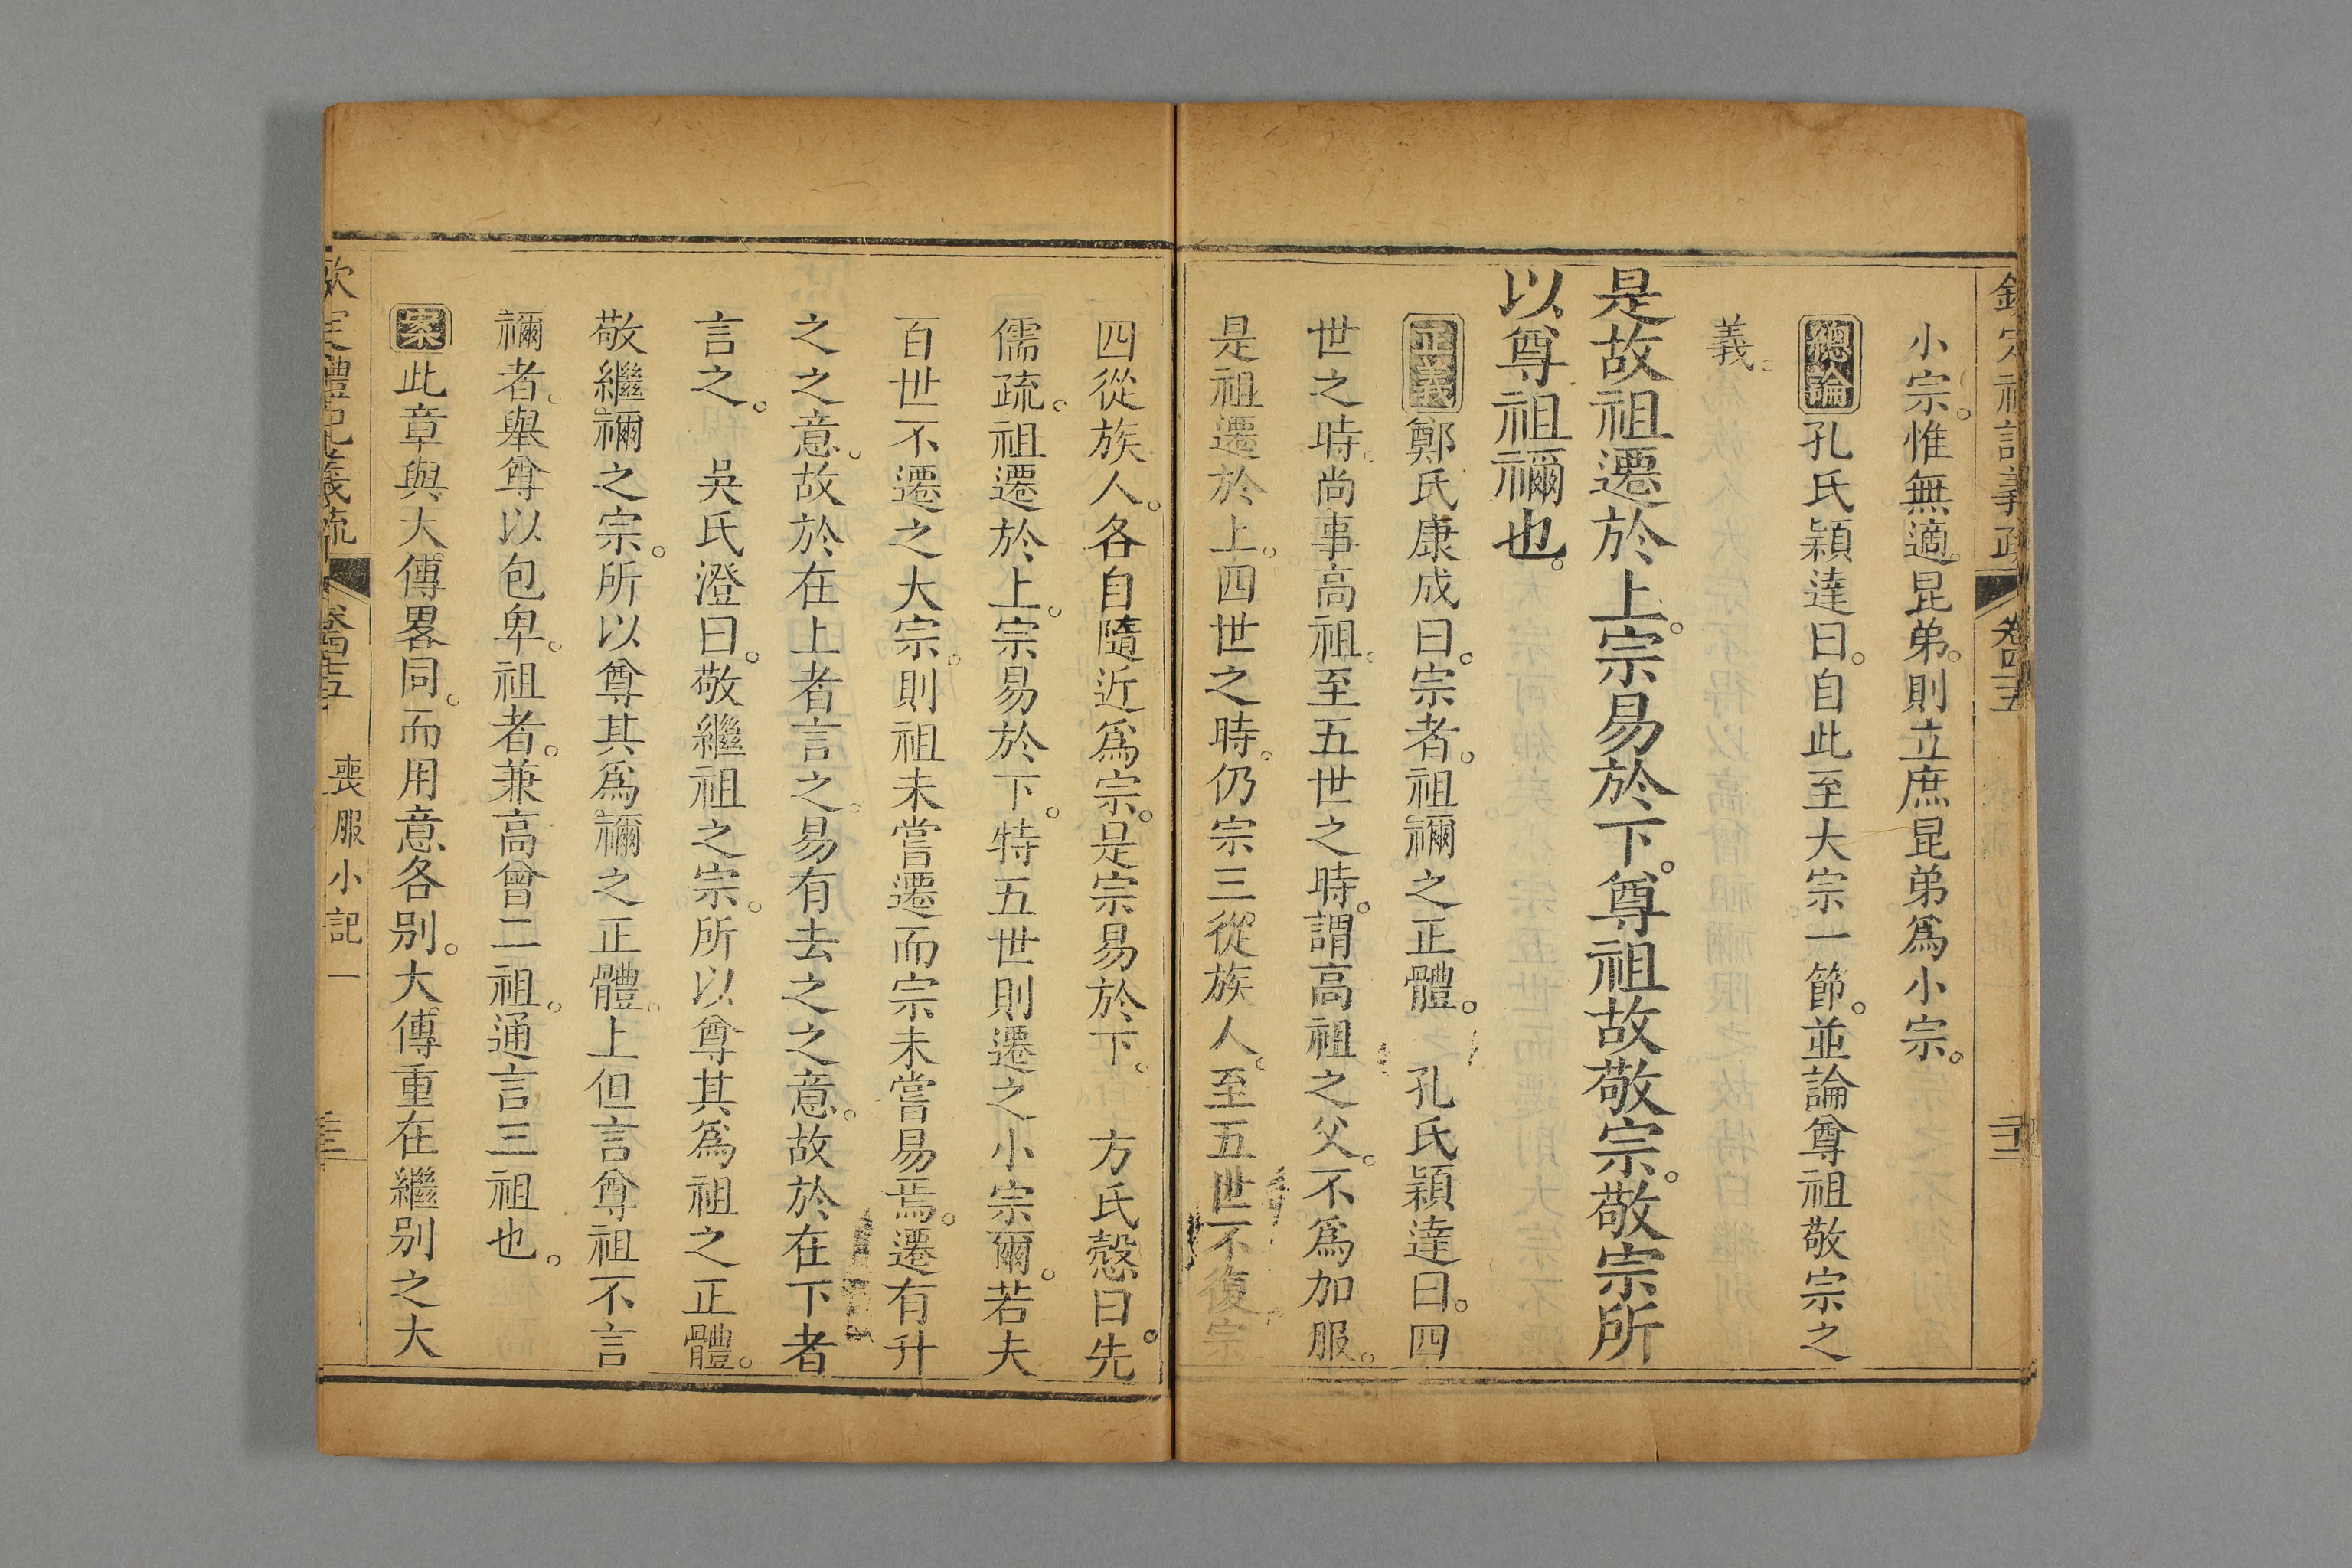 小宗。惟無適昆弟。則立庶昆弟爲小宗。
總論孔氏穎達曰。自此至大宗一節。並論尊祖敬宗之
義。
是故祖遷於上。宗易於下。尊祖故敬宗。敬宗所
以尊祖禰也。
正義鄭氏康成曰。宗者。祖禰之正體。 孔氏穎達曰。四
世之時。尚事高祖。至五世之時。謂高祖之父。不爲加服。
是祖遷於上。四世之時。仍宗三從族人。至五世不復宗
四從族人。各自隨近爲宗。是宗易於下。 方氏慤曰。先
儒疏。祖遷於上。宗易於下。特五世則遷之小宗爾。若夫
百世不遷之大宗。則祖未嘗遷而宗未嘗易焉。遷有升
之之意。故於在上者言之。易有去之之意。故於在下者
言之。 吳氏澄曰。敬繼祖之宗。所以尊其爲祖之正體。
敬繼禰之宗。所以尊其爲禰之正體。上但言尊祖不言
禰者。舉尊以包卑。祖者。兼高曾二祖。通言三祖也。
案此章與大傳畧同。而用意各別。大傳重在繼別之大
欽定禮記義疏 卷四十五 喪服小記一